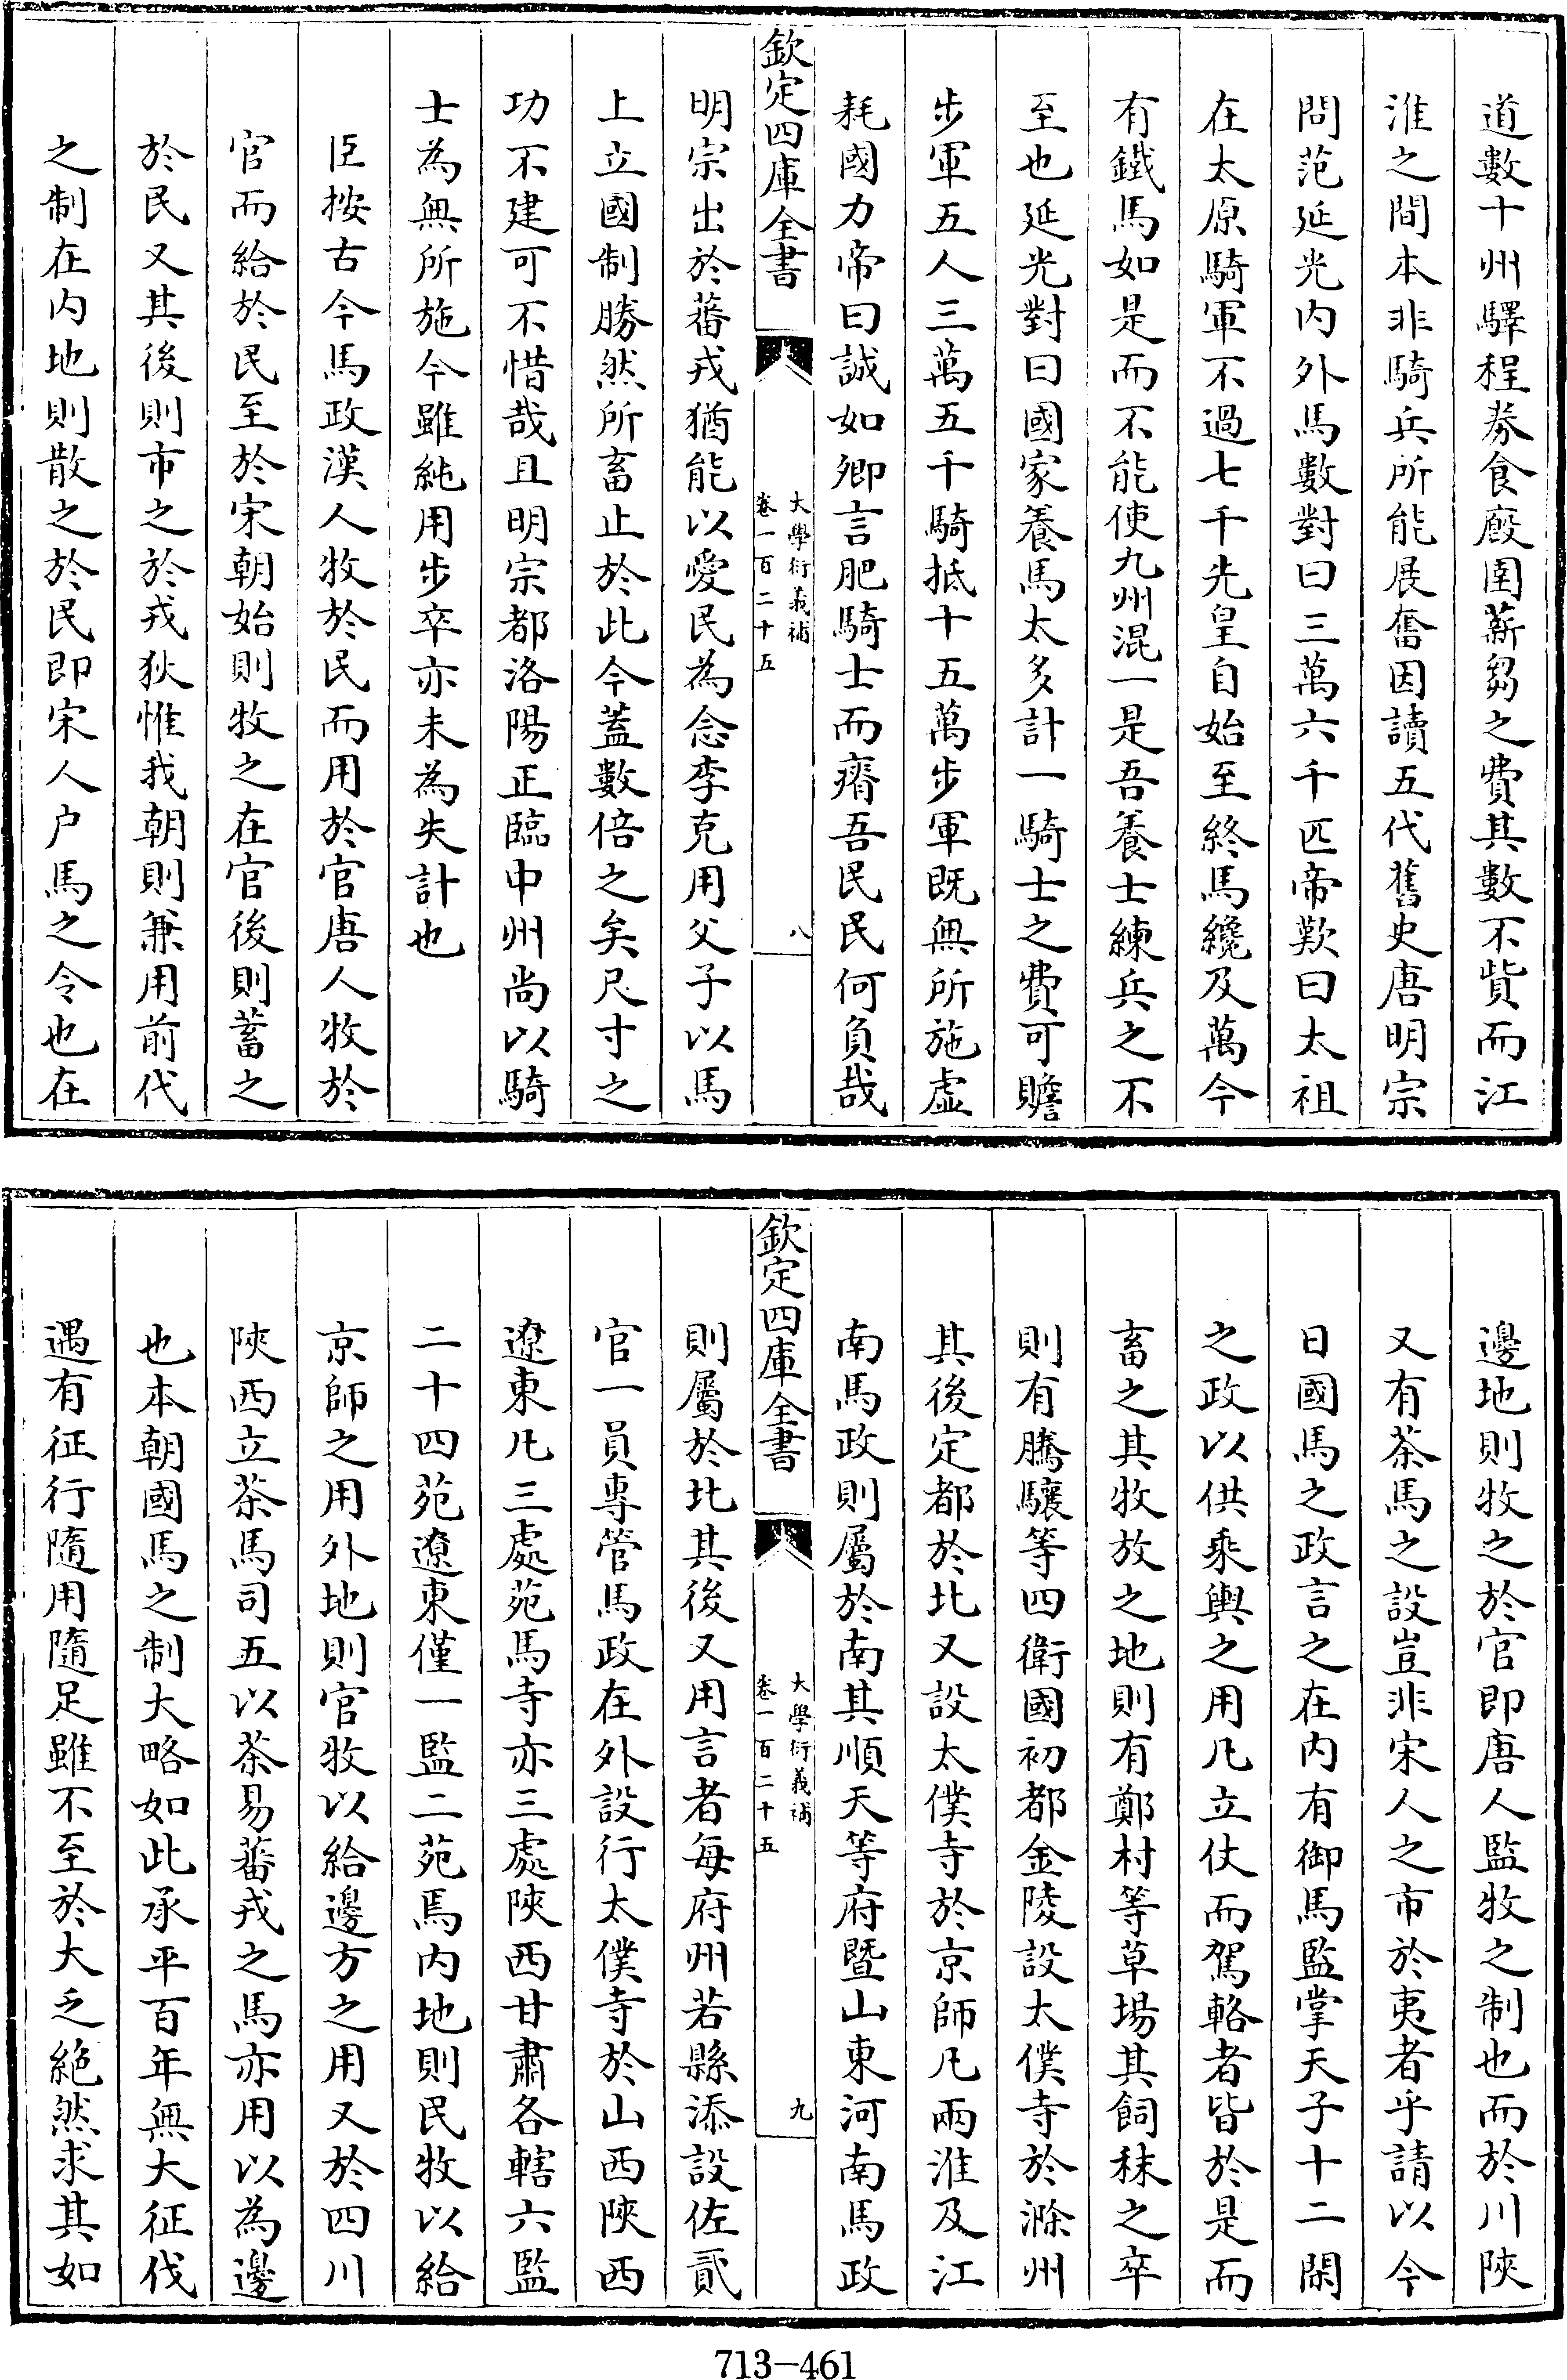 道數十州驛程券食廏圉薪芻之費其數不貲而江
淮之間本非騎兵所能展奮因讀五代舊史唐明宗
問范延光内外馬數對曰三萬六千匹帝歎曰太祖
在太原騎軍不過七千先皇自始至終馬纔及萬今
有鐵馬如是而不能使九州混一是吾養士練兵之不
至也延光對曰國家養馬太多計一騎士之費可贍
步軍五人三萬五千騎抵十五萬步軍既無所施虛
耗國力帝曰誠如卿言肥騎士而瘠吾民民何負哉
欽定四庫全書
大學衍義補
卷一百二十五
八
明宗出於蕃戎猶能以愛民為念李克用父子以馬
上立國制勝然所畜止於此今蓋數倍之矣尺寸之
功不建可不惜哉且明宗都洛陽正臨中州尚以騎
士為無所施今雖純用步卒亦未為失計也
臣按古今馬政漢人牧於民而用於官唐人牧於
官而給於民至於宋朝始則牧之在官後則蓄之
於民又其後則市之於戎狄惟我朝則兼用前代
之制在内地則散之於民即宋人户馬之令也在
邊地則牧之於官即唐人監牧之制也而於川陜
又有茶馬之設豈非宋人之市於夷者乎請以今
日國馬之政言之在内有御馬監掌天子十二閑
之政以供乘輿之用凡立仗而駕輅者皆於是而
畜之其牧放之地則有鄭村等草場其飼秣之卒
則有騰驤等四衛國初都金陵設太僕寺於滁州
其後定都於北又設太僕寺於京師凡兩淮及江
南馬政則屬於南其順天等府暨山東河南馬政
欽定四庫全書
大學衍義補
卷一百二十五
九
則屬於北其後又用言者每府州若縣添設佐貳
官一員專管馬政在外設行太僕寺於山西陜西
遼東凡三處苑馬寺亦三處陜西甘肅各轄六監
二十四苑遼東僅一監二苑焉内地則民牧以給
京師之用外地則官牧以給邊方之用又於四川
陜西立茶馬司五以茶易蕃戎之馬亦用以為邊
也本朝國馬之制大略如此承平百年無大征伐
遇有征行隨用隨足雖不至於大乏絶然求其如
713-461